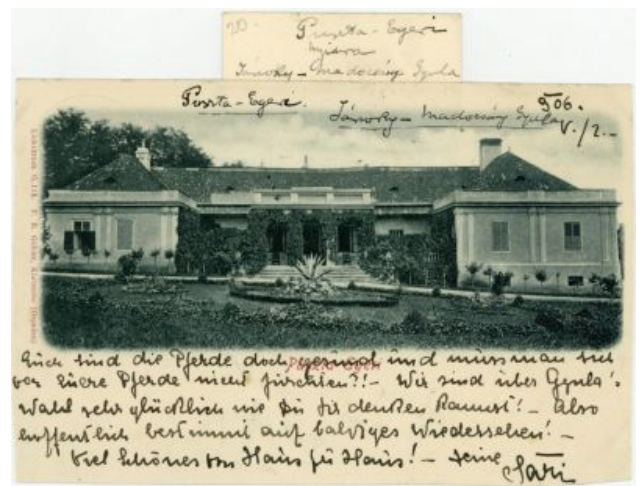 20. Puszta-Egeri
nyara
Jánoky-Madocsány Gyula
Puszta-Egeri. 906.
Jánoky-Madocsány Gyula V./2.-
Puszta Egeri
Euch sind die Pferde doch gesund und muss man sich
vor Euere Pferde nicht fürchten?!- Wir sind über Gyula's
Wahl sehr glücklich wie Du Dir denken kannst!- Also
hoffentlich bestimmt auf baldiges Wiedersehen!-
Viel Schönes von Haus zu Haus!- Deine
Sári